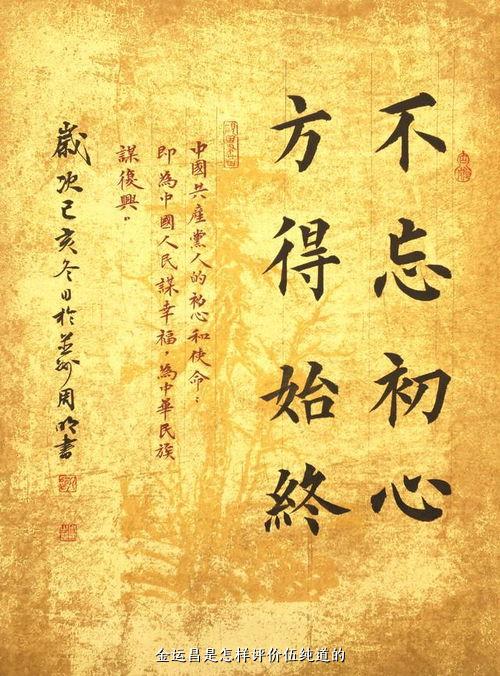 不忘初心
方得始終
中國共產黨人的初心和使命：
即為中國人民謀幸福，為中華民族
謀復興。
歲次己亥冬日於並州周明書
金运昌是怎样评价伍纯道的